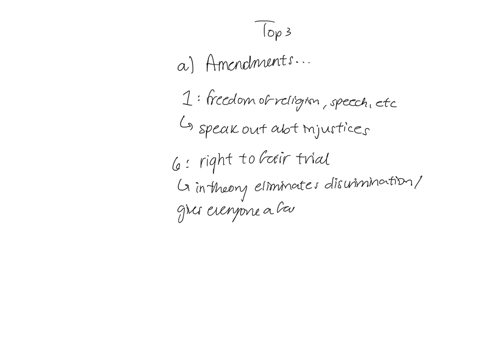 Top 3
a) Amendments...
1: freedom of religion, speech, etc
↳ speak out abt injustices
6: right to fair trial
↳ in theory eliminates discrimination/
gives everyone a